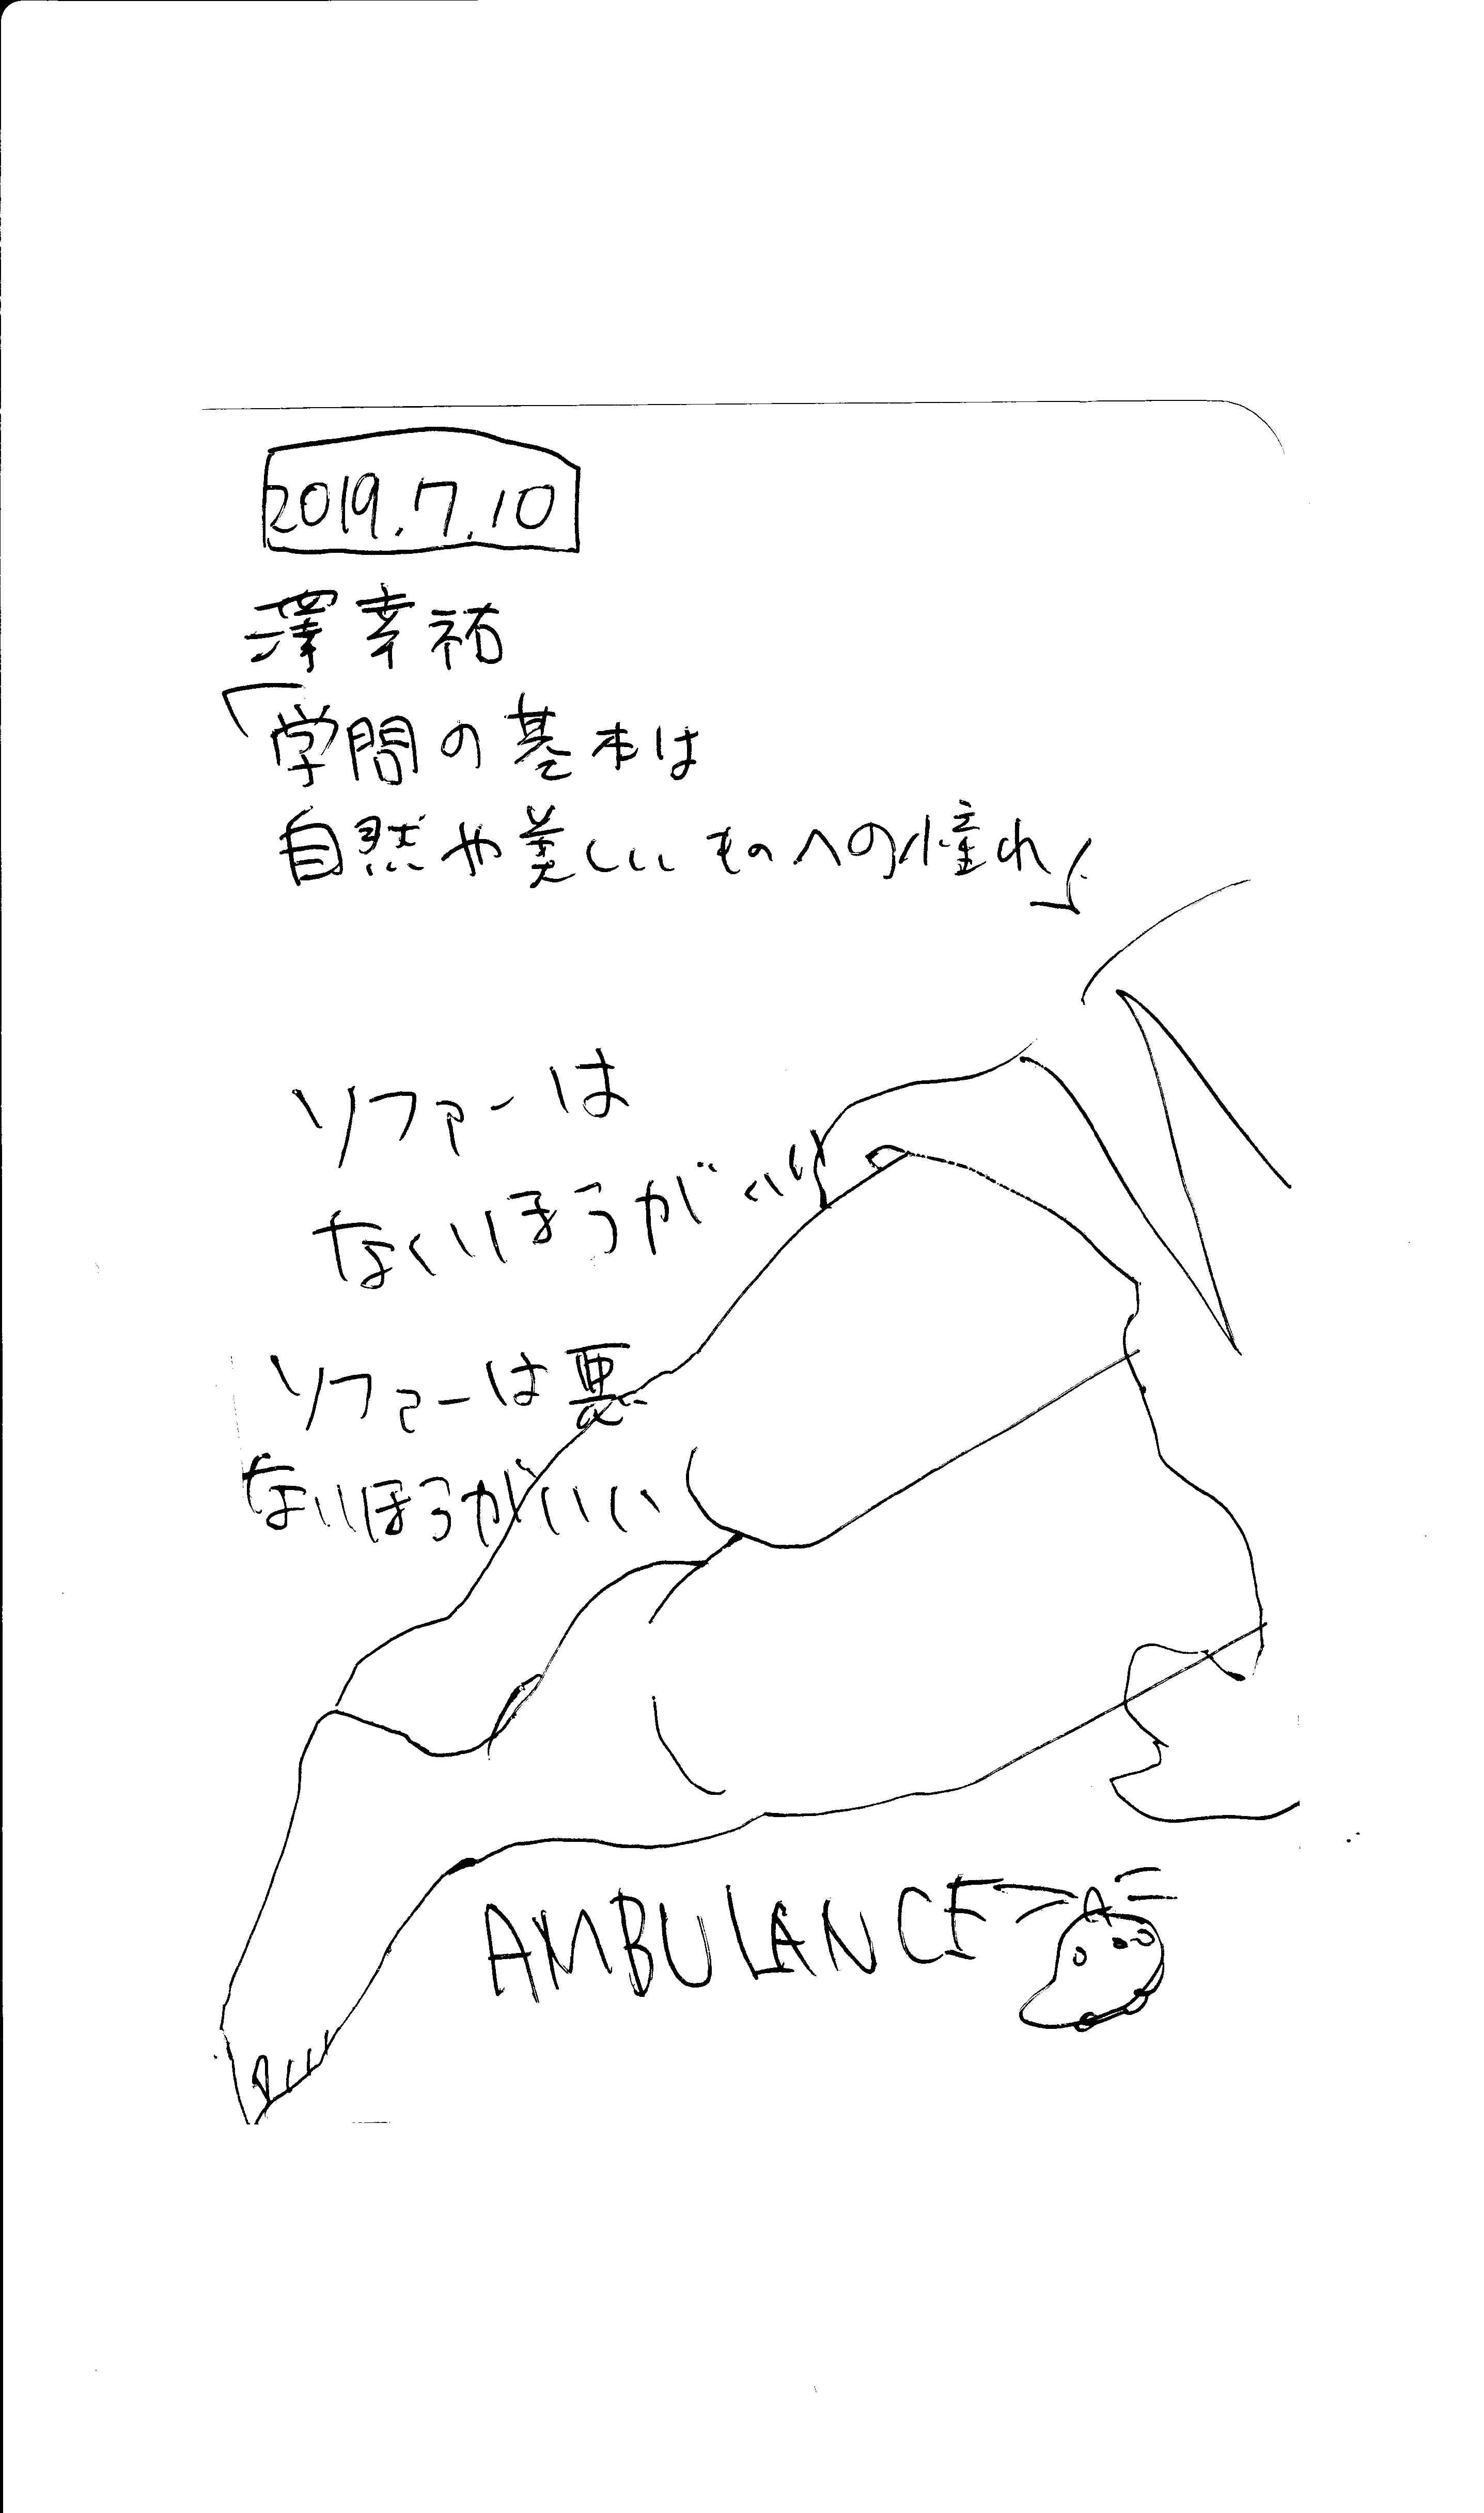 2019.7.10
澤幸祐
「学問の基本は
自然や美しいものへの憧れ」
ソファーは
ないほうがいい
ソファーは悪
ないほうがいい
AMBULANCE